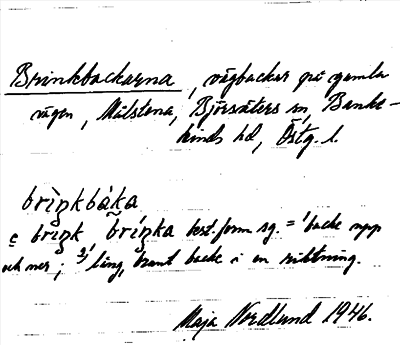 Brinkbackarna, vägbackar på gamla
vägen, Målstena, Björsäters sn, Banke-
kinds hd, Östg. l.
brìŋkbáka
c briŋk bríŋka best. form sg. = 'backe upp
och ner; 3/ lång, brant backe i en riktning.
Maja Nordlund 1946.